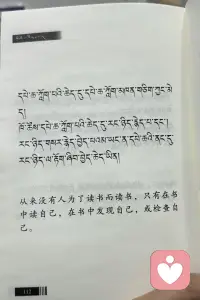 དཔེ་ཆ་ཀློག་པའི་ཆེད་དུ་དཔེ་ཆ་ཀློག་མཁན་གཅིག་ཀྱང་མེ
ད།
ཁོ་ཚོས་དཔེ་ཆ་ཀློག་པའི་ཆེད་དུ་རང་ཉིད་རྙེད་པ་དང་།
རང་ཉིད་གསར་རྙེད་བྱེད་པའམ་ཡང་ན་དཔེ་ཆའི་ནང་དུ་
རང་ཉིད་ལ་རྟོག་ཞིབ་བྱེད་ཆེད་ཡིན།
从来没有人为了读书而读书，只有在书
中读自己，在书中发现自己，或检查自
己。
112